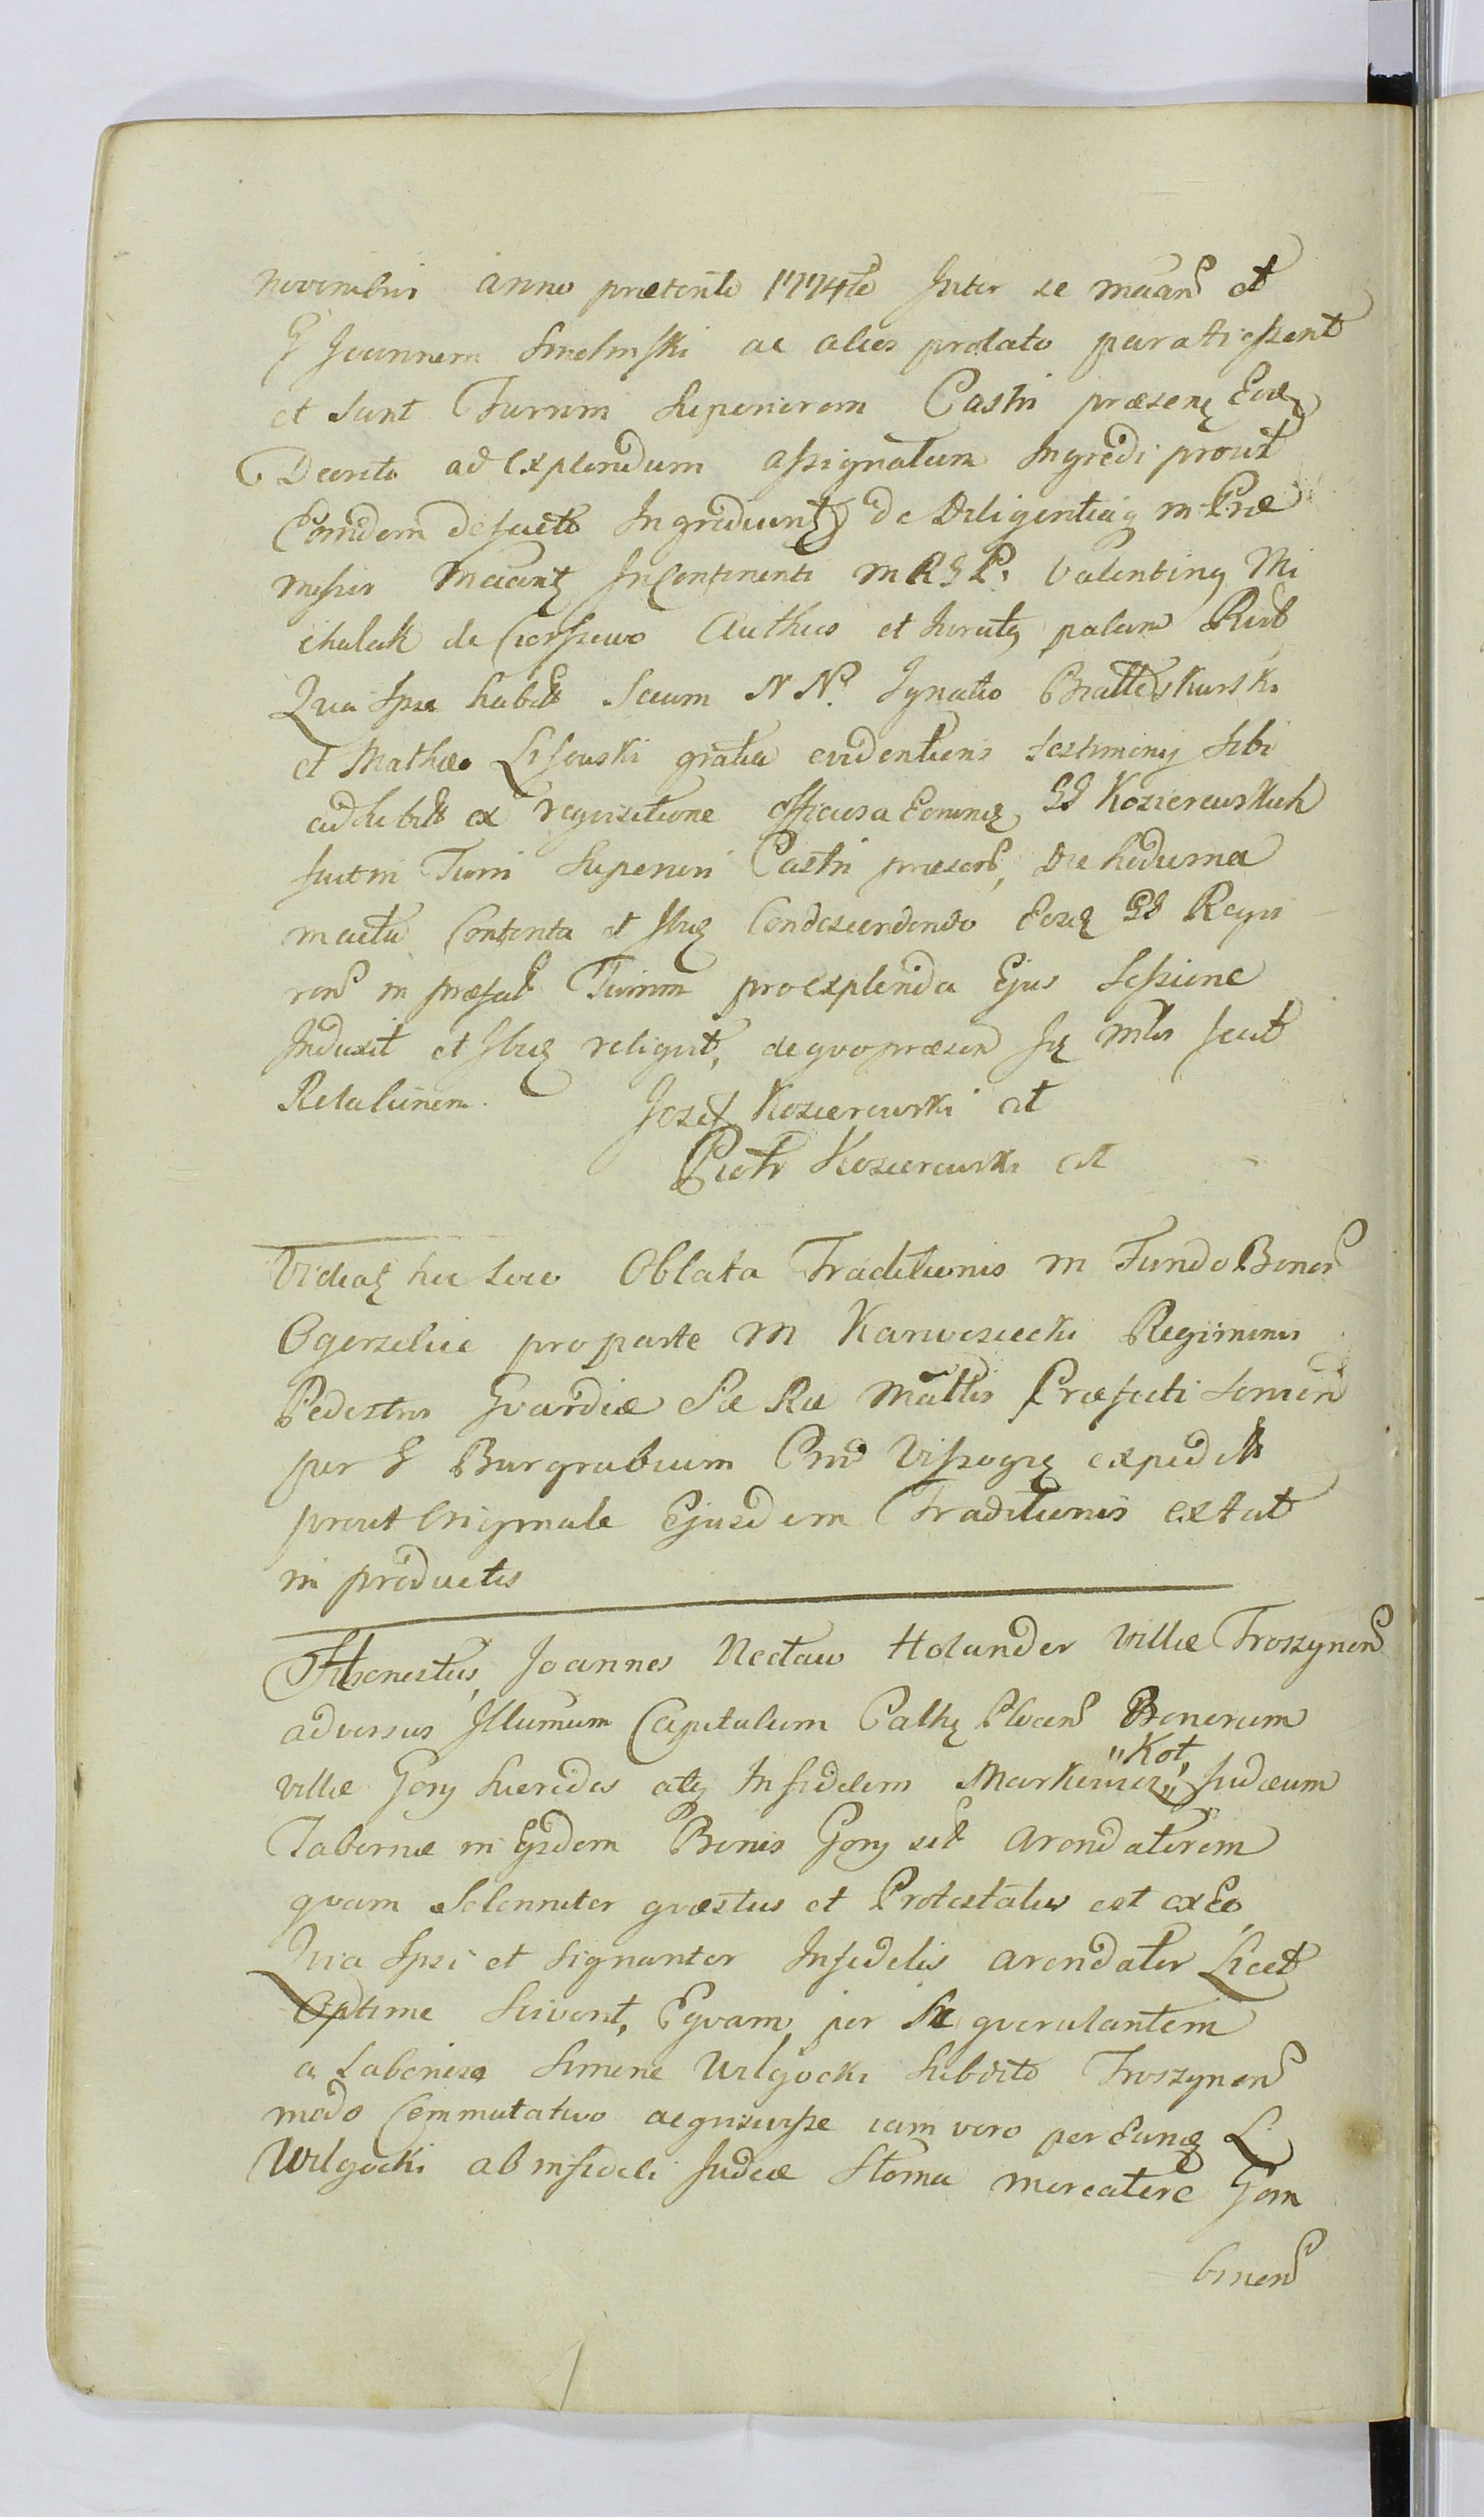 novembris anno præterito 1774to Inter se maan et
G Joannem Smolinski ac alios prolato parati essent
et sunt Turrim Superiorem Castri præsens Eodem
Decreto ad Explendum assignatum Ingredi prout
Eamdem de facto Ingrediuntur de Diligentiaq m Præ
missis maant Incontinenti M R G P. Valentinus Mi
chalak de Ciersiewo Authus et Juratus palam Rxit
Quia Ipse habitt Secum N N. Ignatio Brattkowski
et Mathæo Lisowski gratia evidentioris testimonij Sibi
adhibitt ex requisitione officiosa Eorumd GG Kozierowskich
fuit in Turri Superiori Castri præsent, Die hodierna
m actu Contenta et Ibiq Condescendendo Eosd GG Requi
ren in præfat Turrim pro explenda Ejus Sessione
Induxit et Ibiq reliquit, de quo præsen Sq mlis fecit
Relationem. Jozef Kozierowski mt
Piotr Kozierowski mt
Videatq hic Loco Oblata Traditionis in Fundo Bonor
Ogorzelice pro parte M Karwosiecki Regiminis
Pedestris Gvardiæ Sæ Ræ Mattis Præfecti
per G Burgrabium Vissogr expeditt
prout Originale Ejusdem Traditionis extat
in productis
Honestus Joannes Nectaw Holander Villæ Troszynen
adversus Illumum Capitulum Cathe Plocen Bonorum
villæ Gory Hæredes atq Infidelem Markiewicz "Kot" Judæum
Tabernæ in Ejsdem Bonis Gory sit Arondatorem
quam Solenniter quæstus et Protestatus est ex Eo
Quia Ipsi et signanter Infidelis arendator Licet
Optime Sciverit, Equam per Se querulantem
a Laborioso Simone Wilgocki Subdito Troszynen
modo Commutativo acquisivisse iam vero per Eund L
Wilgocki ab infideli Judæo Sloma mercatore Gom
binen